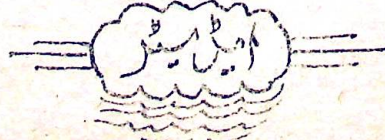 ایڈیٹر